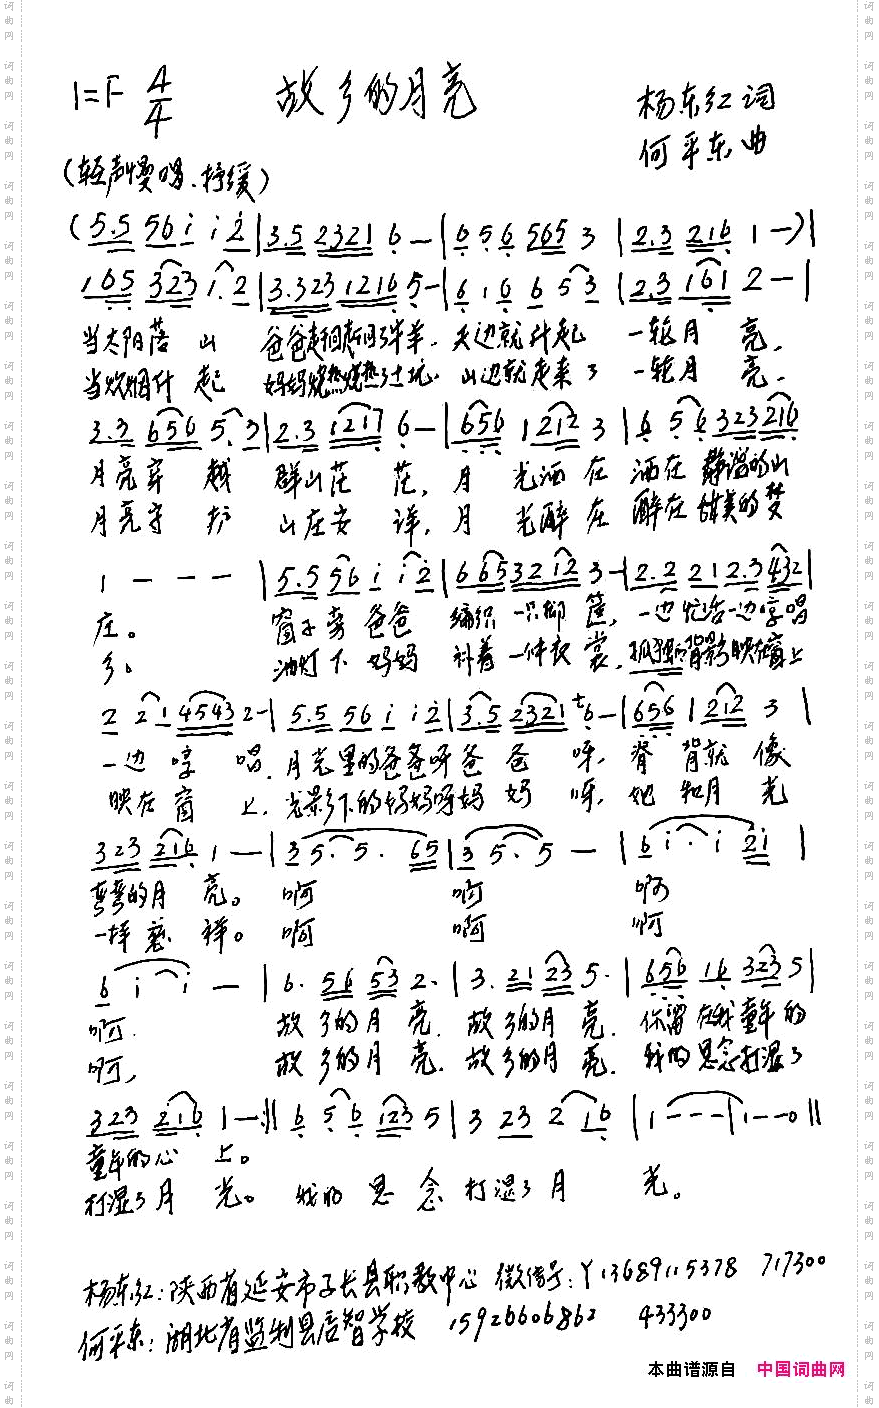 1=F 4/4 故乡的月亮
杨东红词
何平东曲
(轻声慢唱、抒缓)
(5.5 56i i i2|3.5 2321 6—|6 5 6 565 3|2.3 216 1—)|
165 323 1.2|3.323 1216 5—|6 16 6 53|2.3 161 2—|
当太阳落山 爸爸赶回了牛羊.天边就升起 一轮月亮,
当炊烟升起 妈妈烧热了土炕.山边就走来了 一轮月亮.
3.3 656 5.3|2.3 1217 6—|656 1212 3|6 56 323216
月亮穿越 群山茫茫,月光洒在 洒在静谧的山
月亮守护 山庄安详,月光醉在 醉在甜美的梦
1 — — —|5.5 56 i i2|6 653212 3—|2.2 21 2.3432|
庄。 窗子旁爸爸 编织一只柳筐,一边忙活一边哼唱
乡。 油灯下妈妈 补着一件衣裳,孤独的背影映在窗上
2 21 45432—|5.5 56 i i2|3.5 2321 6—|656 1212 3|
一边哼唱.月光里的爸爸呀爸爸呀,脊背就像
映在窗上,光影下的妈妈呀妈妈呀,她和月光
323 216 1—|3 5. 5. 65|3 5. 5 —|6 i. i 2i|
弯弯的月亮。 啊 啊 啊
一样慈祥。 啊 啊 啊
6 i i —|6. 56 53 2.|3. 21 23 5.|656 16 323 5|
啊. 故乡的月亮.故乡的月亮.你留在我童年的
啊, 故乡的月亮.故乡的月亮.我的思念打湿了
323 216 1—:||6 56 123 5|3 23 2 16|1---|1--0||
童年的心上。
打湿了月光。 我的思念打湿了月光。
杨东红:陕西省延安市子长县职教中心 微信号:Y13689115378 717300
何平东:湖北省监利县启智学校 15926606862 433300
本曲谱源自 中国词曲网